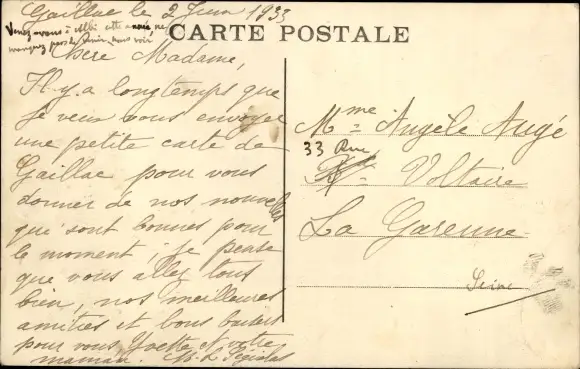 Gaillac le 2 Juin 1933
Venez-vous à Albi cette année, ne
manquez pas de venir nous voir
CARTE POSTALE
Chère Madame,
Il y a longtemps que
je veux vous envoyer
une petite carte de
Gaillac pour vous
donner de nos nouvelles
qui sont bonnes pour
le moment; je pense
que vous allez tous
bien, nos meilleures
amitiés et bons baisers
pour vous Yvette et votre
maman. M. L.
Mme Angèle Augé
33 Rue
Voltaire
La Garenne
Seine